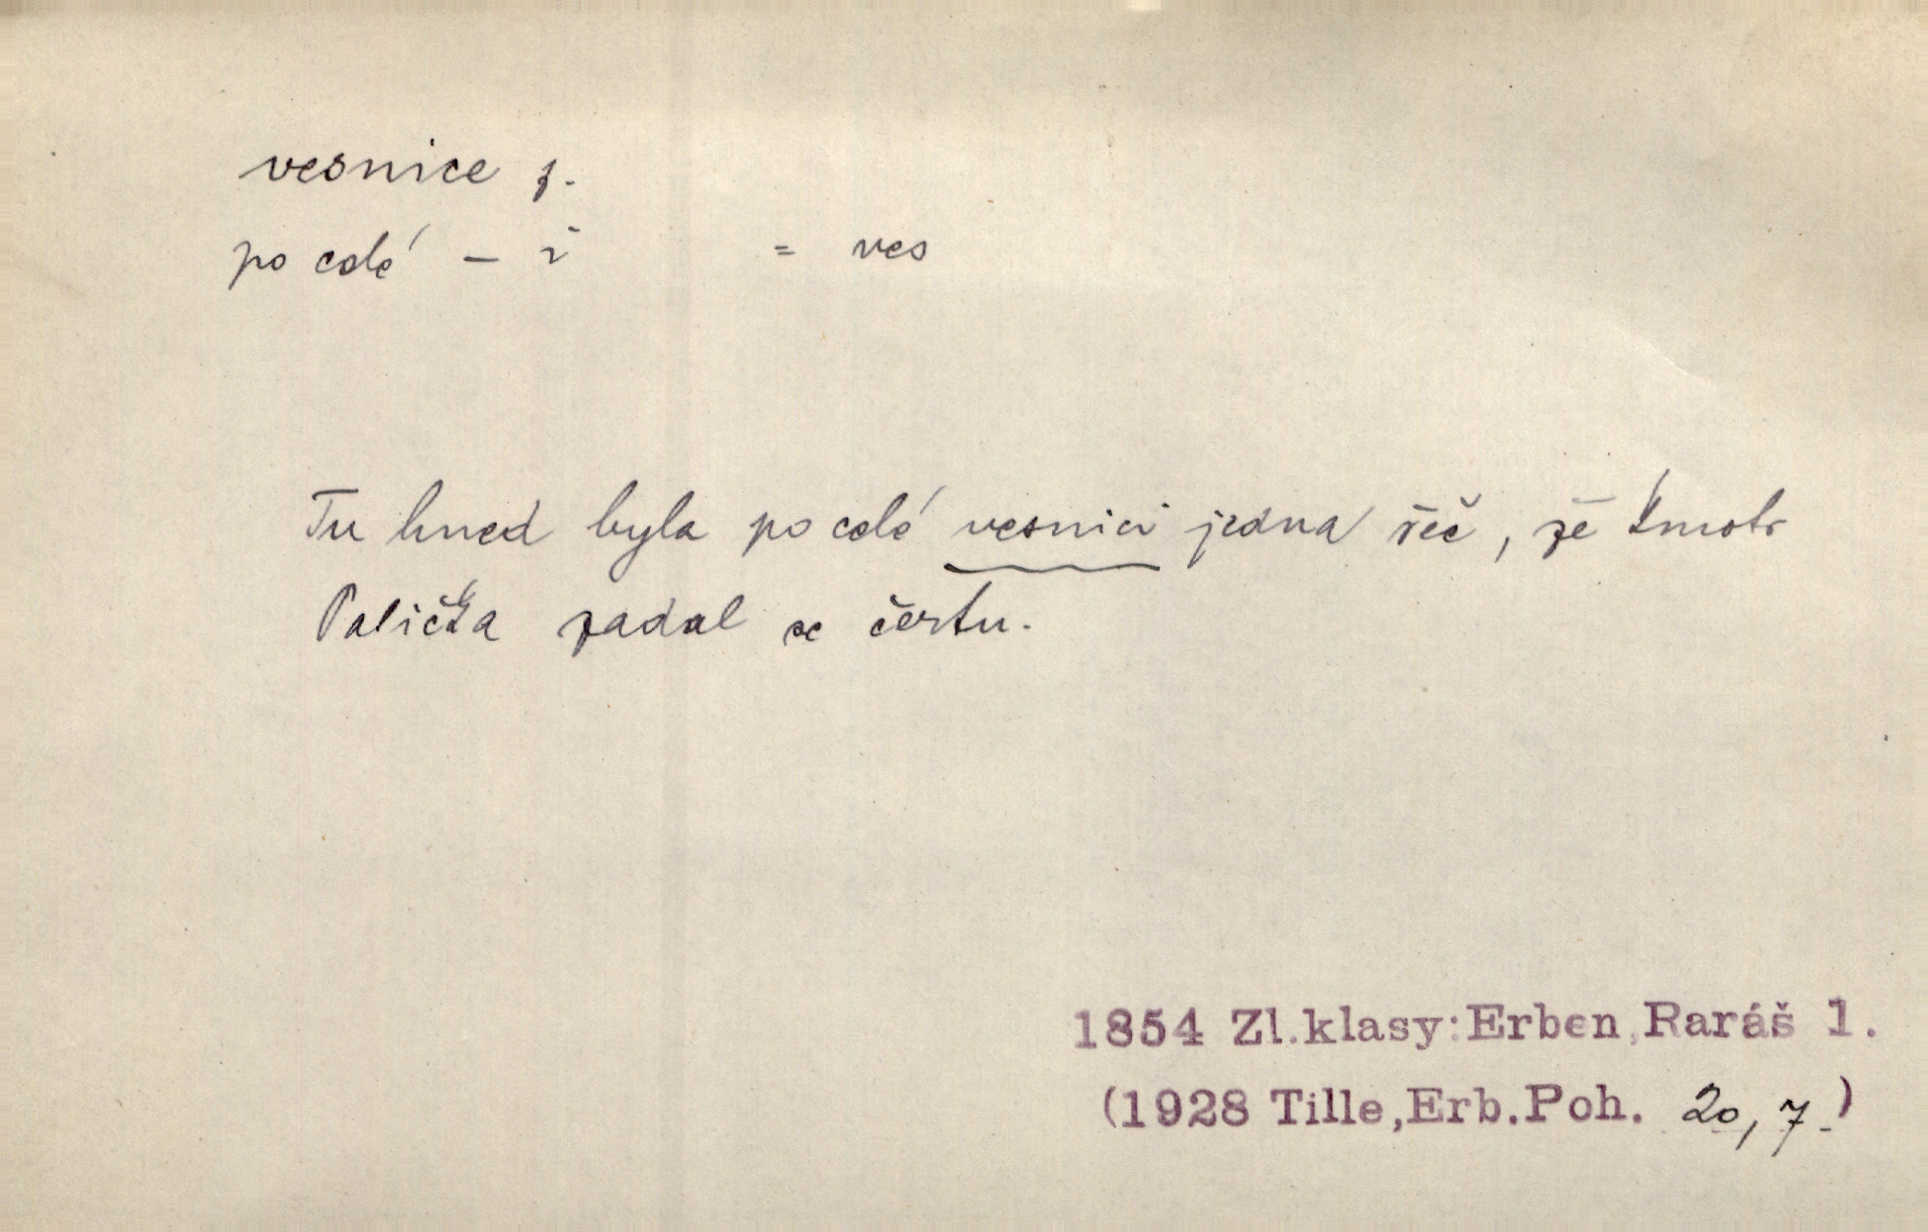 vesnice f.
po celé – i = ves
Tu hned byla po celé vesnici jedna řeč, že kmotr
Palička zadal se čertu.
1854 Zl.klasy:Erben,Raráš 1.
(1928 Tille,Erb.Poh. 20,7.)